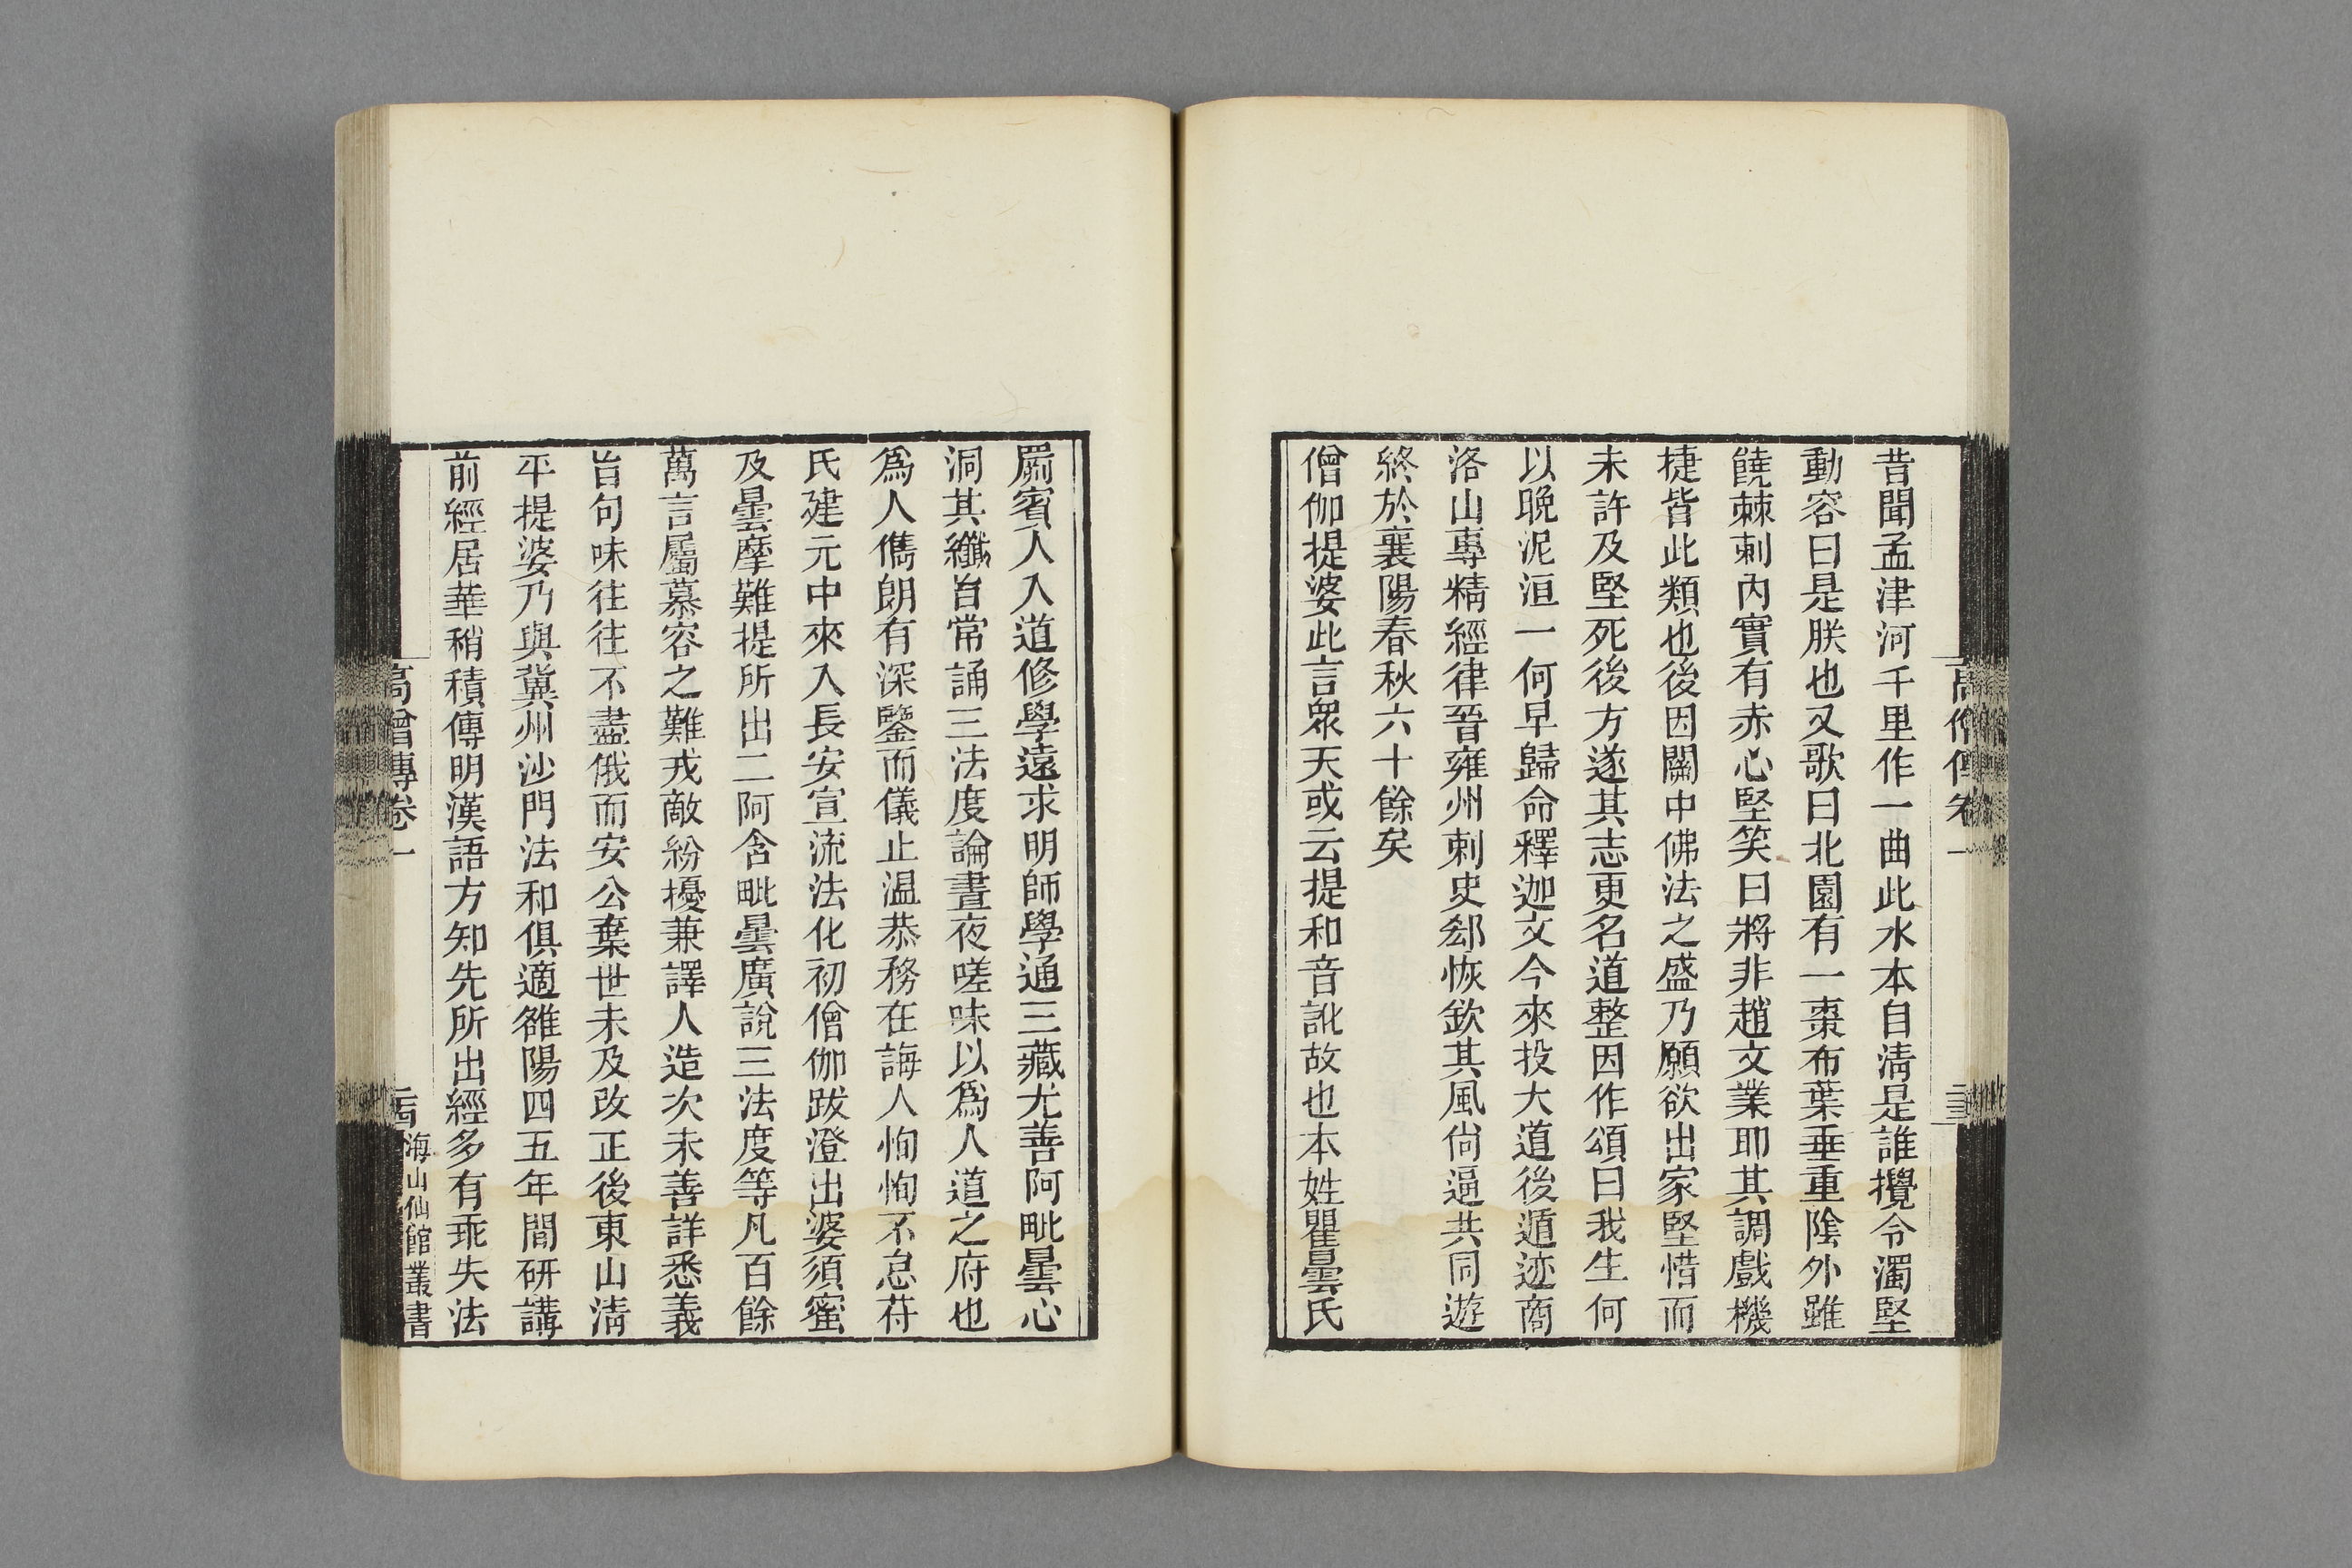 昔聞孟津河千里作一曲此水本自淸是誰攪令濁堅
動容曰是朕也又歌曰北園有一棗布葉垂重陰外雖
饒棘刺內實有赤心堅笑曰將非趙文業耶其調戲機
捷皆此類也後因關中佛法之盛乃願欲出家堅惜而
未許及堅死後方遂其志更名道整因作頌曰我生何
以晚泥洹一何早歸命釋迦文今來投大道後遁迹商
洛山專精經律晉雍州刺史郄恢欽其風尙逼共同遊
終於襄陽春秋六十餘矣
僧伽提婆此言眾天或云提和音訛故也本姓瞿曇氏
罽賓人入道修學遠求明師學通三藏尤善阿毗曇心
洞其纖旨常誦三法度論晝夜嗟味以爲人道之府也
爲人儁朗有深鑒而儀止温恭務在誨人恂恂不怠苻
氏建元中來入長安宣流法化初僧伽跋澄出婆須蜜
及曇摩難提所出二阿含毗曇廣說三法度等凡百餘
萬言屬慕容之難戎敵紛擾兼譯人造次未善詳悉義
旨句味往往不盡俄而安公棄世未及改正後東山淸
平提婆乃與冀州沙門法和俱適雒陽四五年間硏講
前經居華稍積傳明漢語方知先所出經多有乖失法
高僧傳卷一
海山仙館叢書